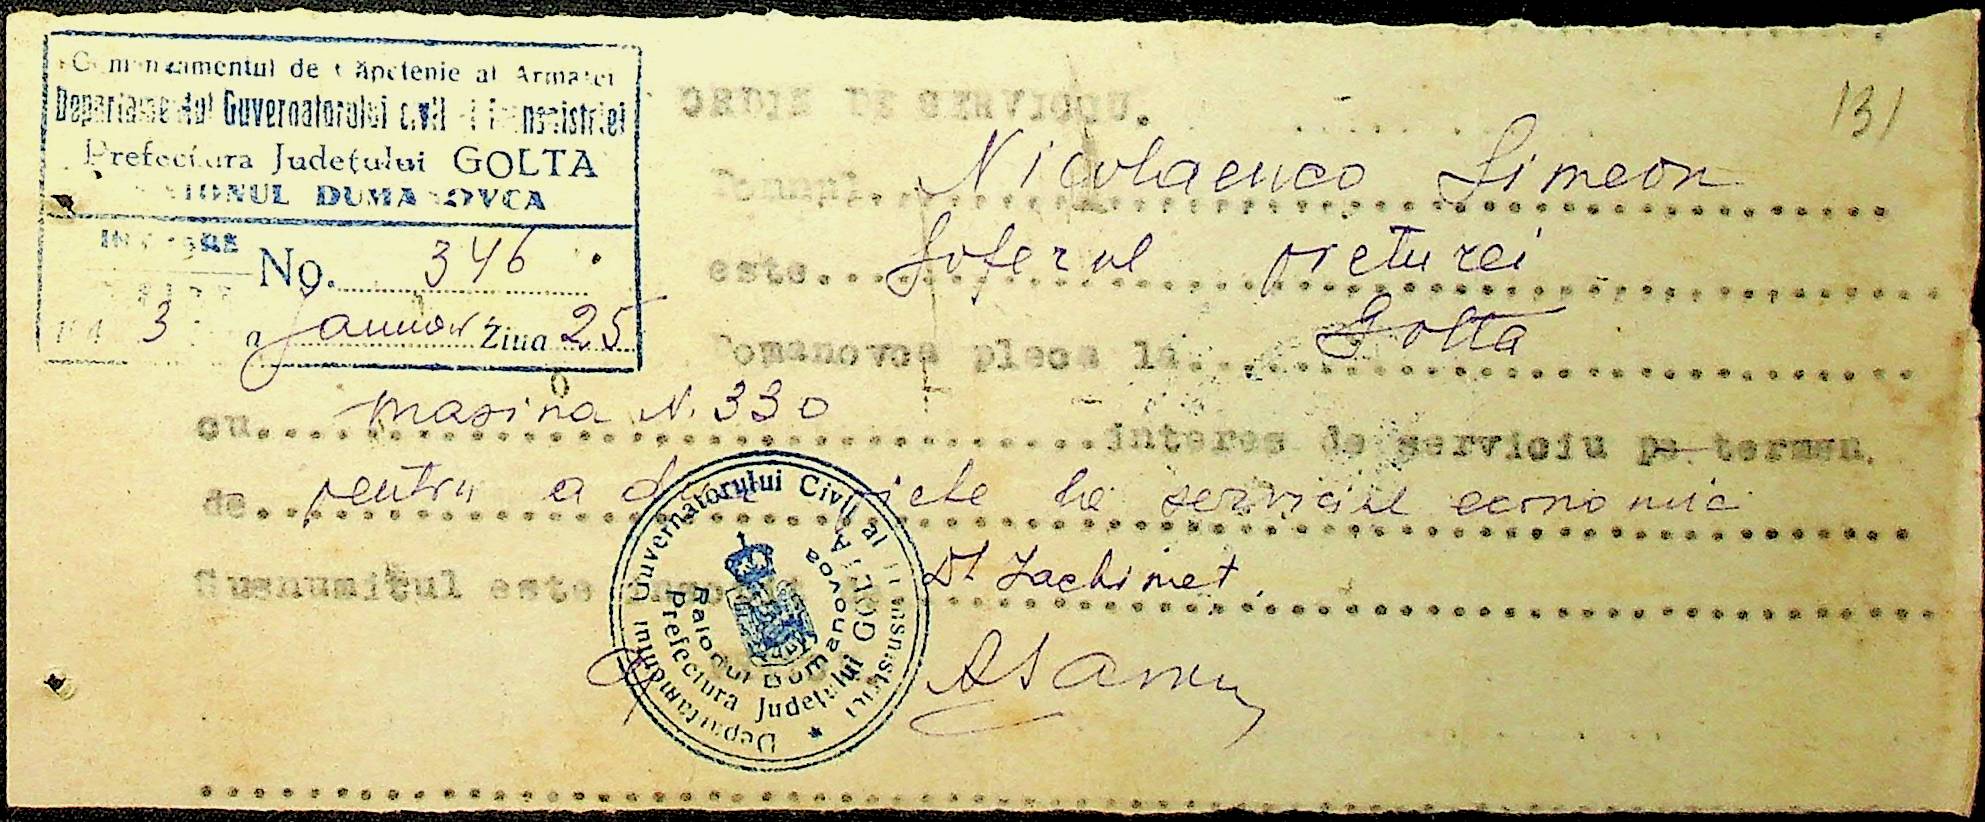 Comandamentul de Căpetenie al Armatei
Departamentul Guvernatorului civil al Transnistriei
Prefectura Județului GOLTA
RAIONUL DUMANOVCA
No. 346
3 Ianuar Ziua 25
131
ORDIN DE SERVICIU.
Domnul. Nicolaenco Simeon
este. Soferul
Domanovca pleca la. Golta
cu. masina N. 330 interes de serviciu pe termen
de. pentru a duce la serviciul economic
Susnumitul este Dl. Iachimet.
Departamentul Guvernatorului Civil al Transnistriei
Prefectura Județului GOLTA
Raionul Domanovca